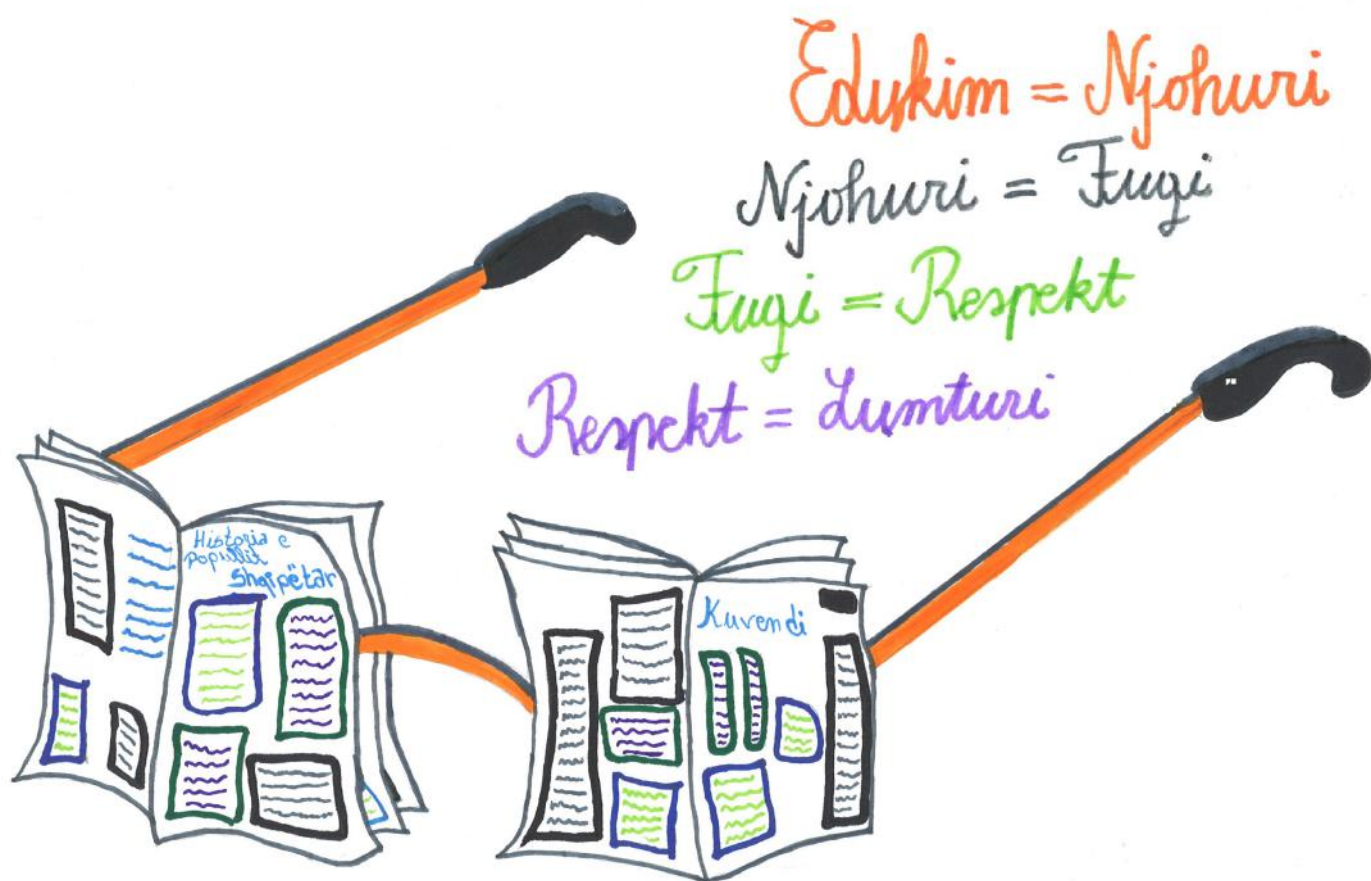 Edukim = Njohuri
Njohuri = Fuqi
Fuqi = Respekt
Respekt = Lumturi
Historia e
popullit
Shqipëtar
Kuvendi